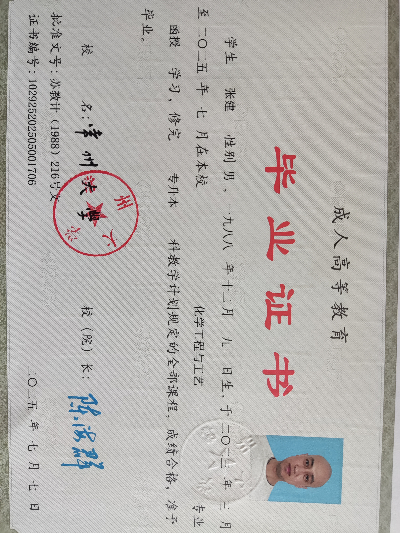 成人高等教育
毕业证书
学生 张建 性别 男，一九八八年十二月 九 日生，于二〇二三年 三 月
至二〇二五年 七 月在本校 化学工程与工艺 专业
函授 学习，修完 专升本 科教学计划规定的全部课程，成绩合格，准予
毕业。
校 名：常州大学 校（院）长：陈海群
批准文号：苏教计（1988）216号文
证书编号：102925202505001706 二〇二五年 七 月 七 日